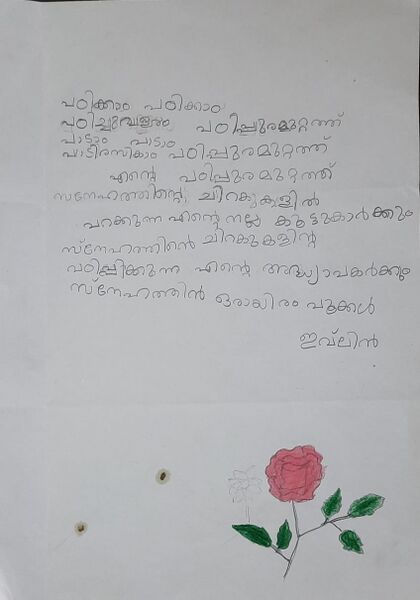 പഠിക്കാം പഠിക്കാം
പഠിച്ചുവളരാം പഠിപ്പുരമുറ്റത്ത്
പാടാം പാടാം
പാടിരസികാം പഠിപ്പുരമുറ്റത്ത്
എന്റെ പഠിപ്പുരമുറ്റത്ത്
സ്നേഹത്തിന്റെ ചിറകുകളിൽ
പറക്കുന്ന എന്റെ നല്ല കൂട്ടുകാർക്കും
സ്നേഹത്തിൻ ചിറകുകളിന്റ
പഠിപ്പിക്കുന്ന എന്റെ അദ്ധ്യാപകർക്കും
സ്നേഹത്തിൻ ഒരായിരം പൂക്കൾ
ഇവ്ലിൻ